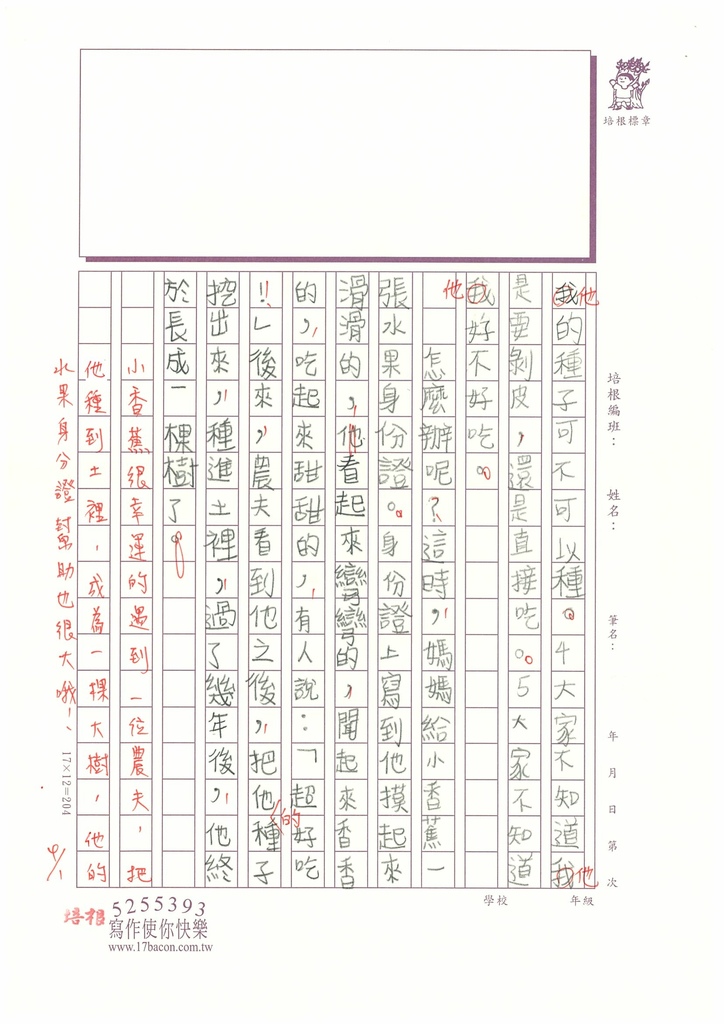 培根標章
培根編班：　姓名：　筆名：　年　月　日　第　次
學校　年級
我他的種子可不可以種。4大家不知道我他
是要剝皮，還是直接吃。5大家不知道
他我好不好吃。
怎麼辦呢？這時，媽媽給小香蕉一
張水果身份證。身份證上寫到他摸起來
滑滑的，他看起來彎彎的，聞起來香香
的，吃起來甜甜的，有人說：「超好吃
的!!」後來，農夫看到他之後，把他種子
挖出來，種進土裡，過了幾年後，他終
於長成一棵樹了。
小香蕉很幸運的遇到一位農夫，把
他種到土裡，成為一棵大樹，他的
水果身分證幫助也很大哦！
17×12=204
4/1
培根
5255393
寫作使你快樂
www.17bacon.com.tw